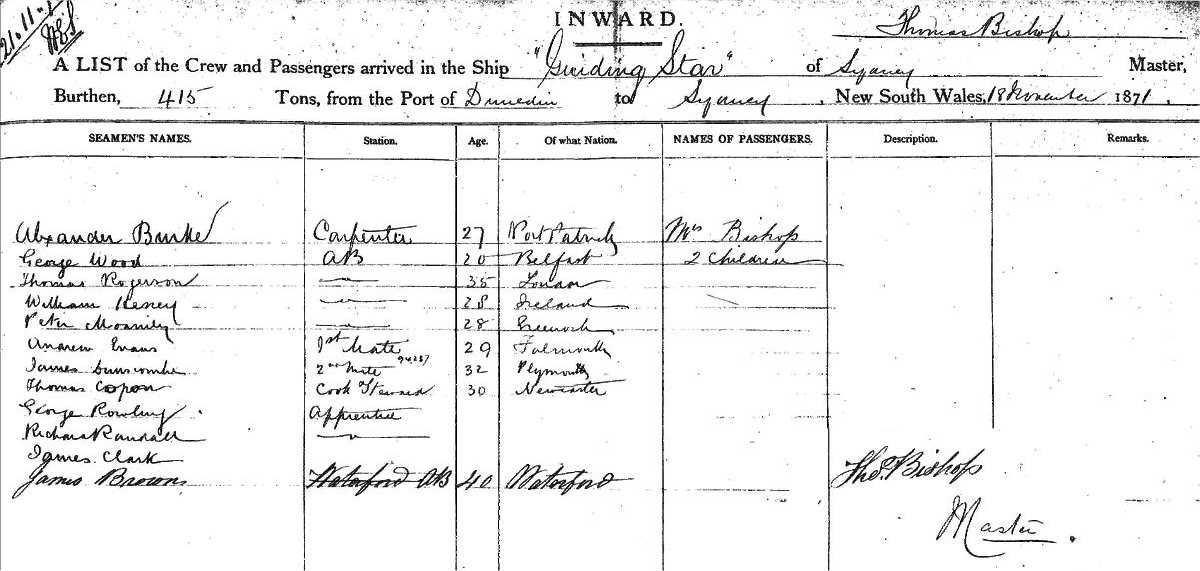 21.11.71
INWARD.
Thomas Bishop
A LIST of the Crew and Passengers arrived in the Ship "Guiding Star" of Sydney Master,
Burthen, 415 Tons, from the Port of Dunedin to Sydney, New South Wales, 18 November 1871.
SEAMEN'S NAMES. Station. Age. Of what Nation. NAMES OF PASSENGERS. Description. Remarks.
Alexander Burke Carpenter 27 Port Patrick Mrs Bishop
George Wood AB 20 Belfast 2 Children
Thomas Rogerson 35 London
William 28 Ireland
Peter 28 Greenock
Andrew Evans 1st Mate 29 Falmouth
James Dunscombe 2nd Mate 32 Plymouth
Thomas Copon Cook Steward 30 Newcaster
George Rowling Apprentice
Richard Randall
James Clark
James Brown Waterford AB 40 Waterford Thos. Bishop
Master.